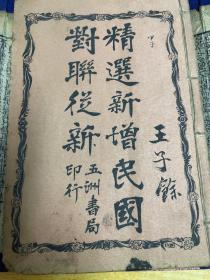 精選新增民國
對聯從新
五洲書局
印行
王子餘